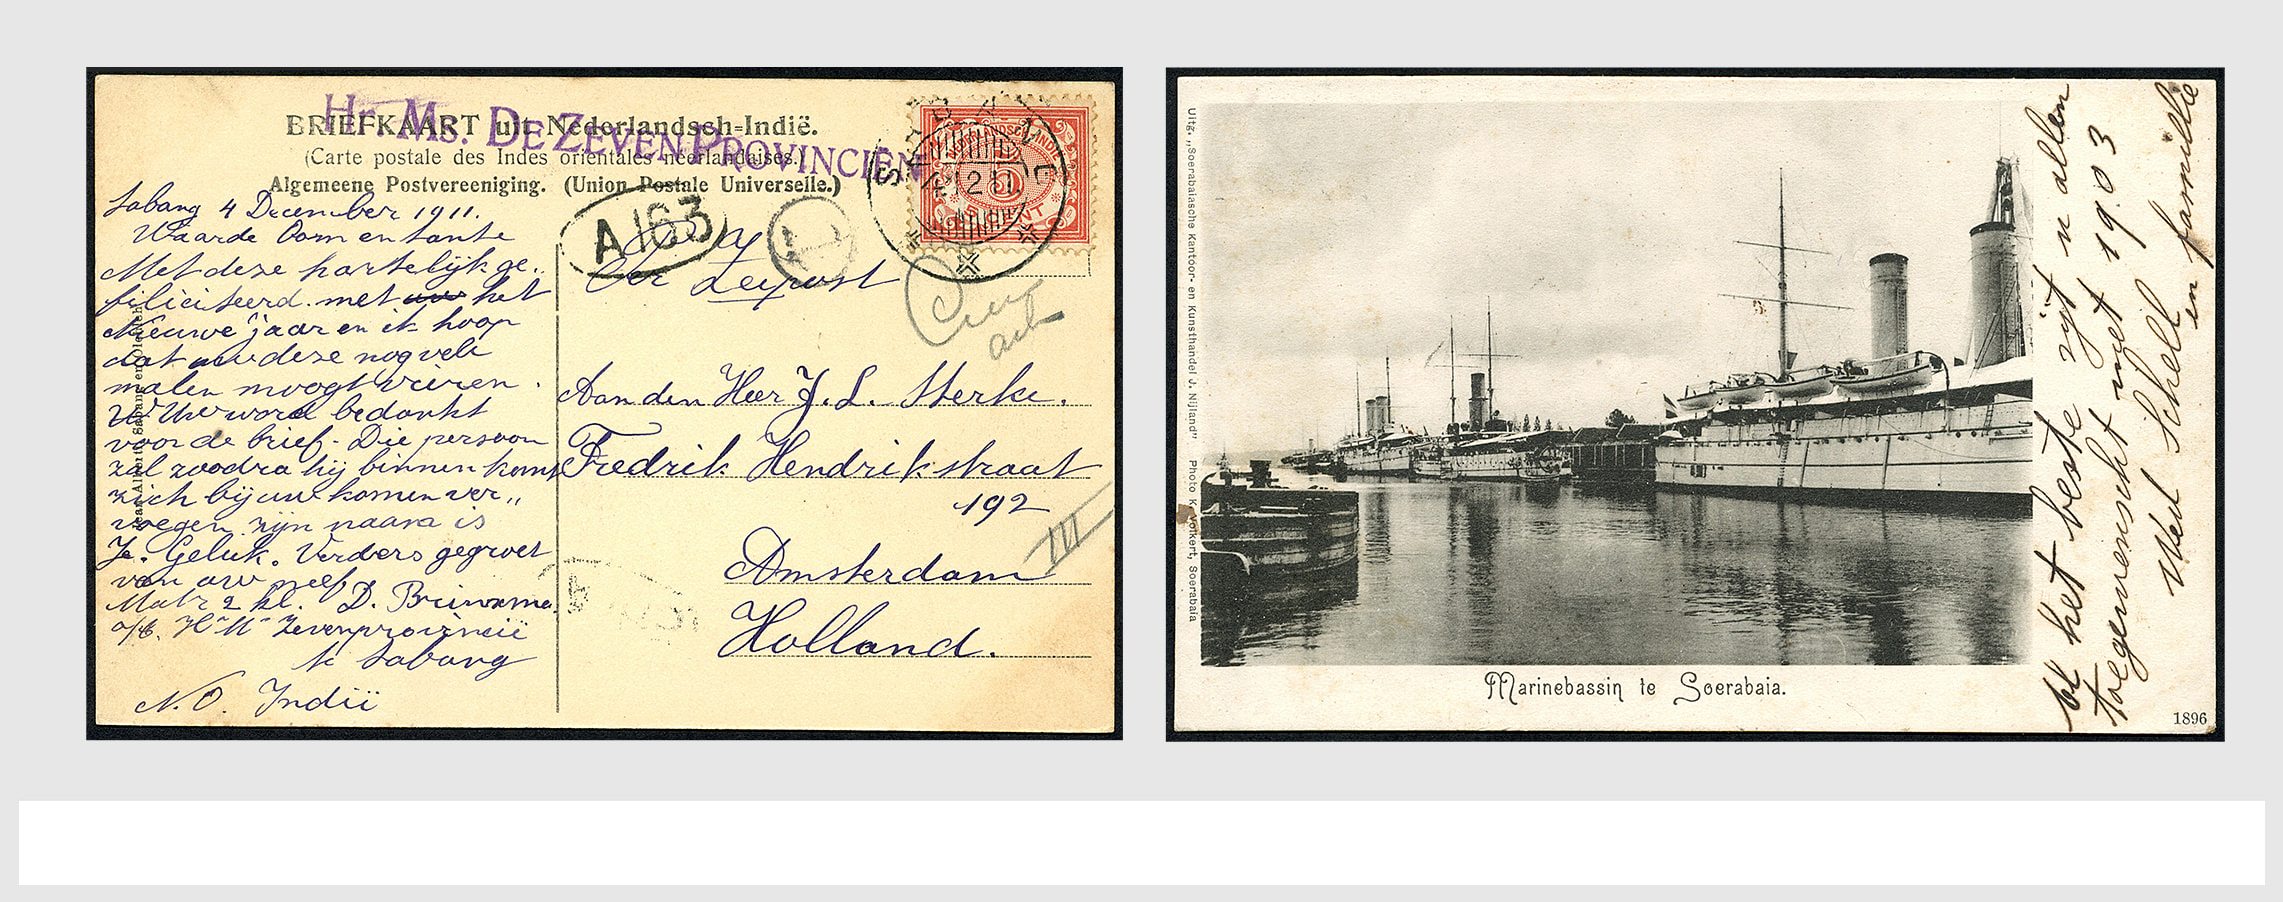 Hr. Ms. DE ZEVEN PROVINCIËN
BRIEFKAART uit Nederlandsch=Indië.
(Carte postale des Indes orientales néerlandaises.)
Algemeene Postvereeniging. (Union Postale Universelle.)
SABANG
12 11
NEDERLANDSCH-INDIË
5
CENT
A 163
T
Sabang 4 December 1911.
Waarde Oom en tante
Met deze hartelijk ge„
filiciteerd met uw het
Nieuwe jaar en ik hoop
dat uw deze nog vele
malen moogt vieren.
Uw word bedankt
voor de brief. Die persoon
zal zoodra hij binnen komt
zich bij uw komen ver„
voegen zijn naam is
Je. Geluk. Verders gegroet
van uw neef
Matr 2 kl. D. Bruinsma
a/b. Hr Ms Zevenprovincië
te Sabang
N. O. Indië
Per Zeepost
Aan den Heer J. L. Sterke.
Fredrik Hendrikstraat
192
III
Amsterdam
Holland.
Uitg. „Soerabaiasche Kantoor- en Kunsthandel J. Nijland" Photo K. Volkert, Soerabaia
Marinebassin te Soerabaia.
1896
Al het beste zijt u allen
toegewenscht met 1903
Wed Schell en familie